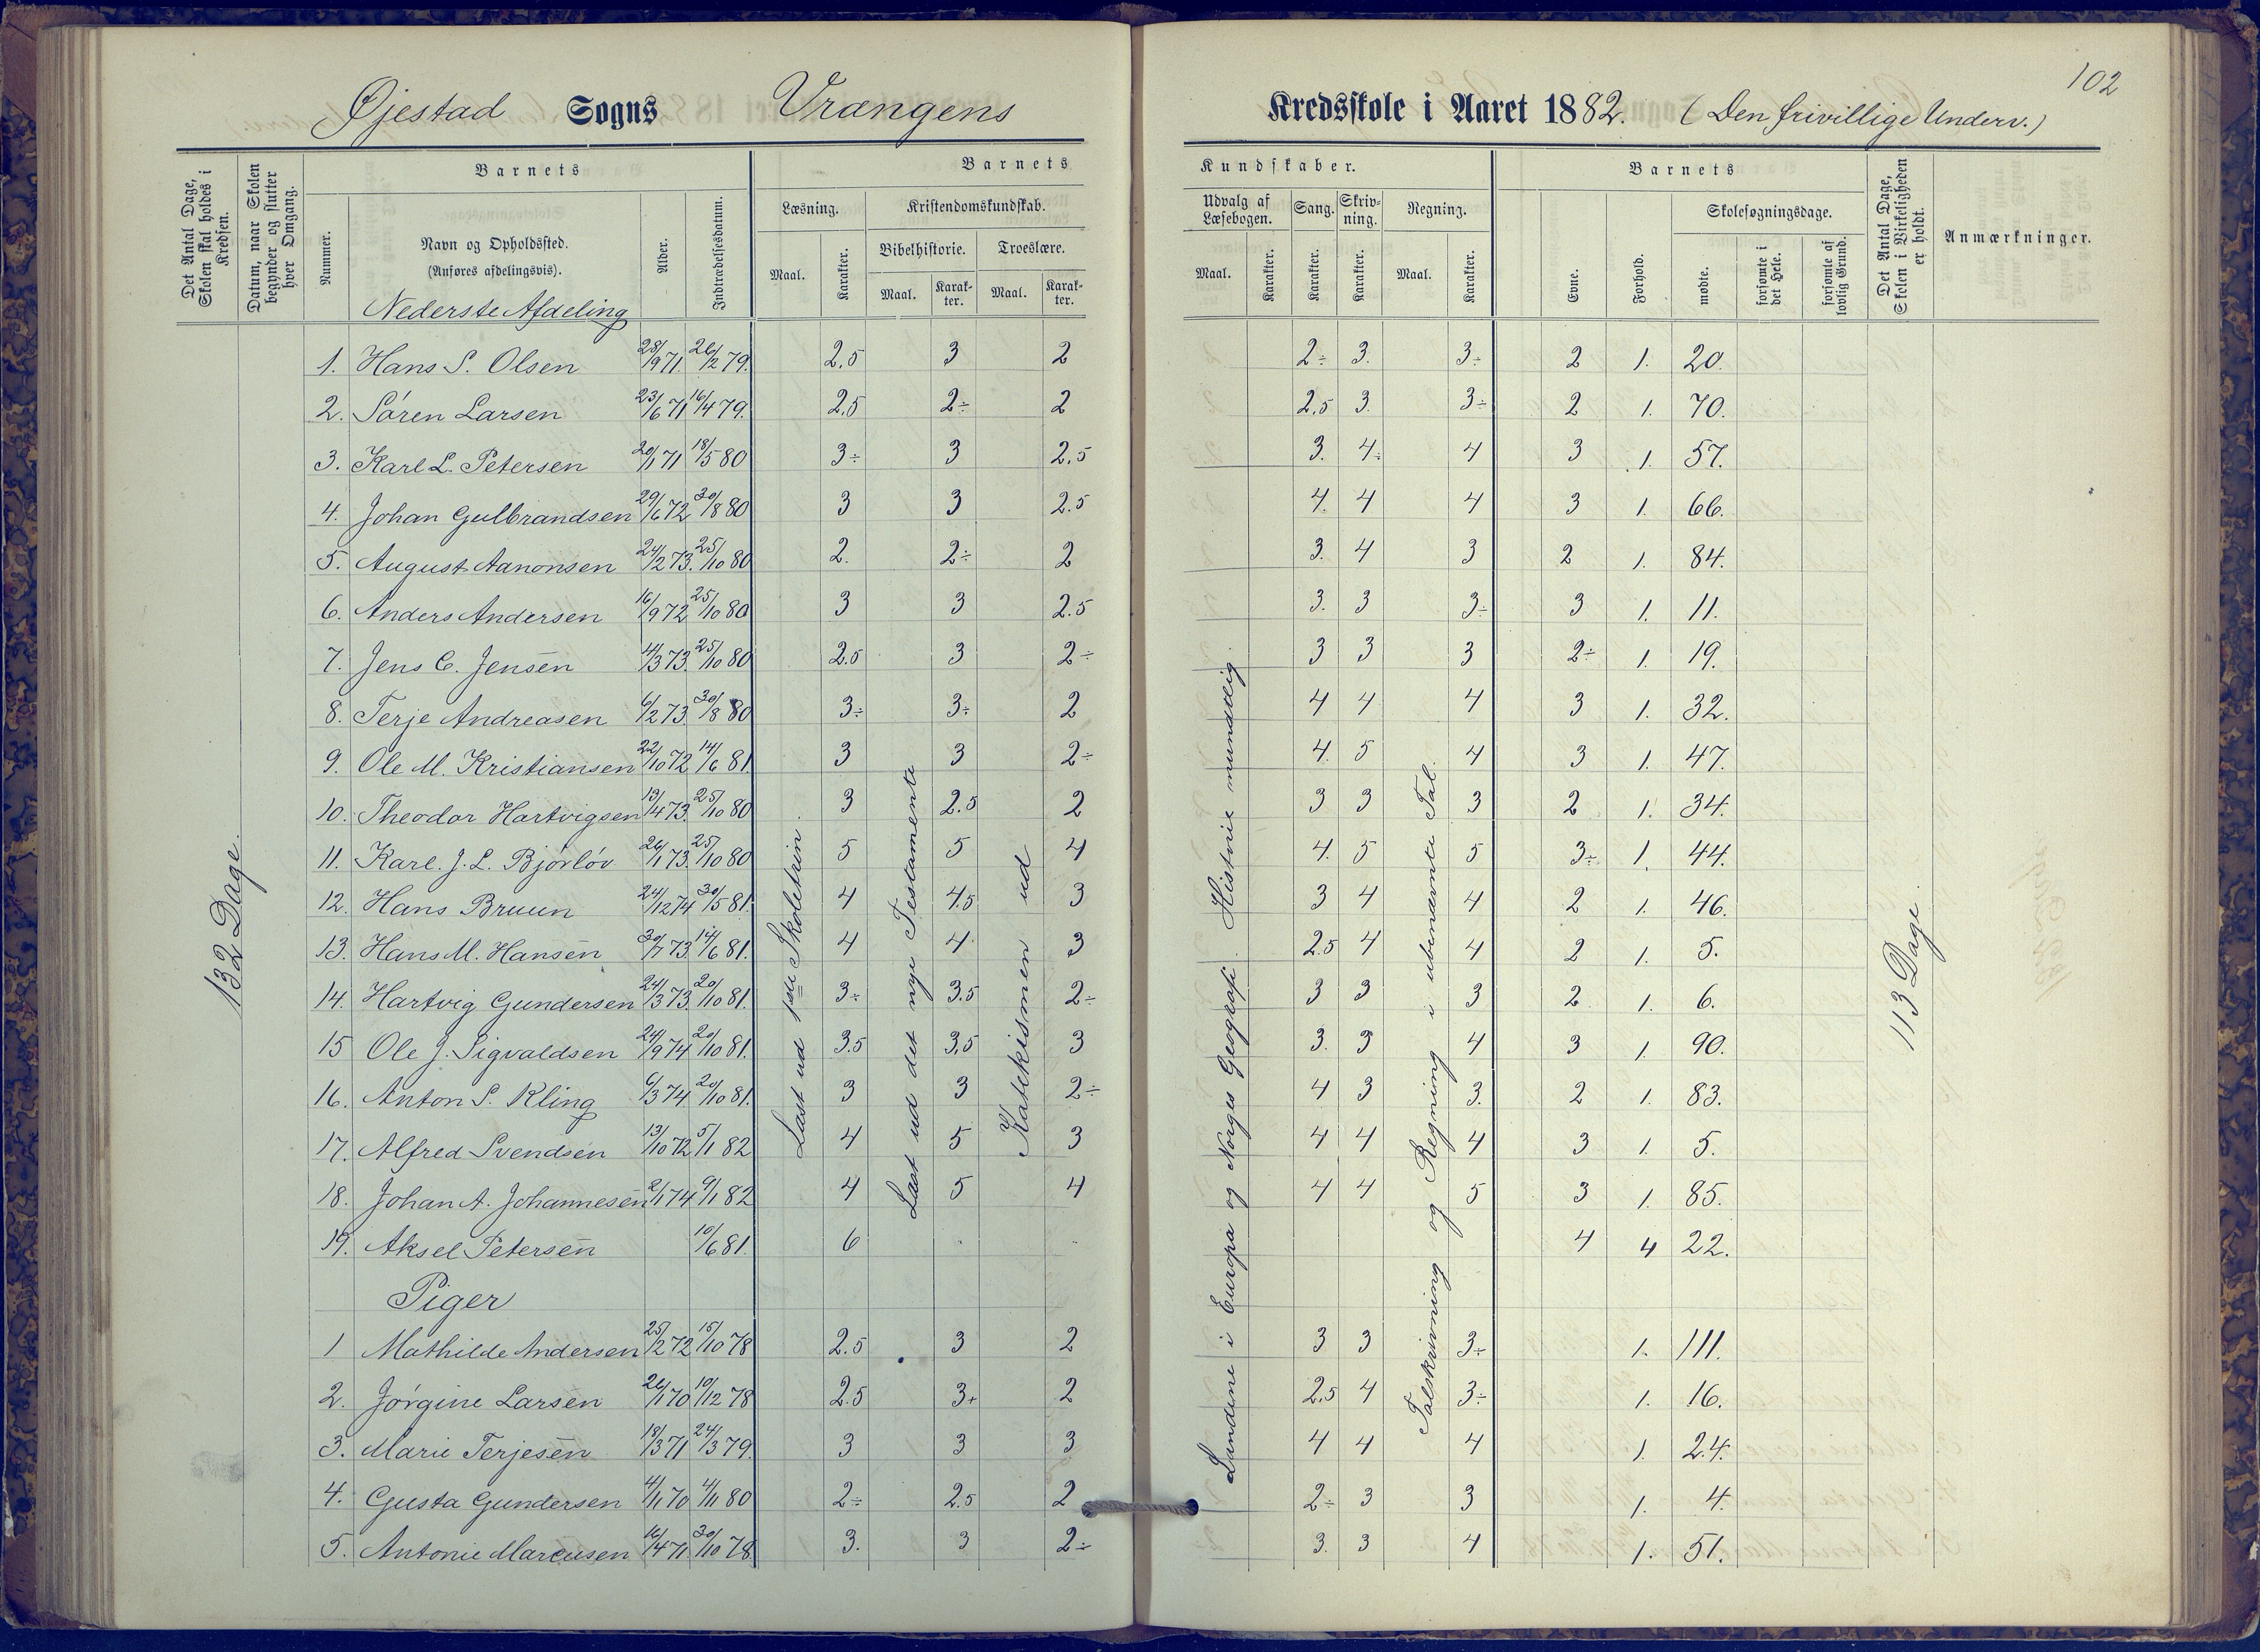 102
Øjestad Sogns Vrangens Kredsskole i Aaret 1882. (Den frivillige Underv.)
Det Antal Dage, Skolen skal holdes i Kredsen.
Datum, naar Skolen begynder og slutter hver Omgang.
Barnets
Nummer.
Navn og Opholdssted.
(Anføres afdelingsvis).
Alder.
Indtrædelsesdatum.
Barnets Kundskaber.
Læsning.
Maal. Karakter.
Kristendomskundskab.
Bibelhistorie. Troeslære.
Maal. Karakter. Maal. Karakter.
Udvalg af Læsebogen.
Maal. Karakter.
Sang. Karakter.
Skrivning. Karakter.
Regning.
Maal. Karakter.
Barnets
Evne. Forhold.
Skolesøgningsdage.
mødte. forsømte i det Hele. forsømte af lovlig Grund.
Det Antal Dage, Skolen i Virkeligheden er holdt.
Anmærkninger.
132 Dage
Læst ud 1ste Skoletrin.
Læst ud det nye Testamente
Katekismen ud
Landene i Europa og Norges Geografi. Historie mundtlig.
Talskrivning og Regning i ubenævnte Tal.
113 Dage
Nederste Afdeling
1. Hans S. Olsen 28/9 71. 26/2 79. 2.5 3 2 2÷ 3. 3÷ 2 1. 20.
2. Sören Larsen 23/6 71 16/4 79. 2.5 2÷ 2 2.5 3. 3÷ 2 1. 70.
3. Karl L. Petersen 20/1 71 18/5 80 3÷ 3 2.5 3. 4÷ 4 3 1. 57.
4. Johan Gulbrandsen 29/6 72 30/8 80 3 3 2.5 4. 4 4 3 1. 66.
5. August Aanonsen 24/2 73. 25/10 80 2. 2÷ 2 3. 4 3 2 1. 84.
6. Anders Andersen 16/9 72 25/10 80 3 3 2.5 3. 3 3÷ 3 1. 11.
7. Jens C. Jensen 4/3 73. 25/10 80 2.5 3 2÷ 3 3 3 2÷ 1. 19.
8. Terje Andreasen 6/2 73 30/8 80 3÷ 3÷ 2 4 4 4 3 1. 32.
9. Ole M. Kristiansen 22/10 72 14/6 81. 3 3 2÷ 4. 5 4 3 1. 47.
10. Theodor Hartvigsen 13/4 73. 25/10 80 3 2.5 2 3 3 3 2 1. 34.
11. Karl. J. L. Bjórlóv 26/1 73. 25/10 80 5 5 4 4. 5 5 3÷ 1. 44.
12. Hans Bruun 24/12 74 30/5 81. 4 4.5 3 3 4 4 2 1. 46.
13. Hans M. Hansen 30/7 73. 14/6 81. 4 4. 3 2.5 4 4 2 1. 5.
14. Hartvig Gundersen 24/3 73. 20/10 81. 3÷ 3.5 2÷ 3 3 3 2 1. 6.
15 Ole J. Sigvaldsen 24/9 74 20/10 81. 3.5 3.5 3 3. 3 4 3 1. 90.
16. Anton S. Kling 6/3 74 20/10 81. 3 3 2÷ 4 3 3. 2 1. 83.
17. Alfred Svendsen 13/10 72 5/1 82 4 5 3 4 4 4 3 1. 5.
18. Johan A. Johannesen 2/1 74 9/1 82 4 5 4 4 4 5 3 1. 85.
19. Aksel Petersen 10/6 81. 6 4 4 22.
Piger
1 Mathilde Andersen 25/2 72 15/10 78 2.5 3 2 3 3 3÷ 1. 111.
2. Jórgine Larsen 26/1 70 10/12 78 2.5 3+ 2 2.5 4 3÷ 1. 16.
3. Marie Terjesen 18/3 71 24/3 79. 3 3 3 4 4 4 1. 24.
4. Gusta Gundersen 4/11 70 4/11 80 2÷ 2.5 2 2÷ 3 3 1. 4.
5. Antonie Marcusen 16/4 71. 30/10 78. 3. 3 2÷ 3. 3 4 1. 51.